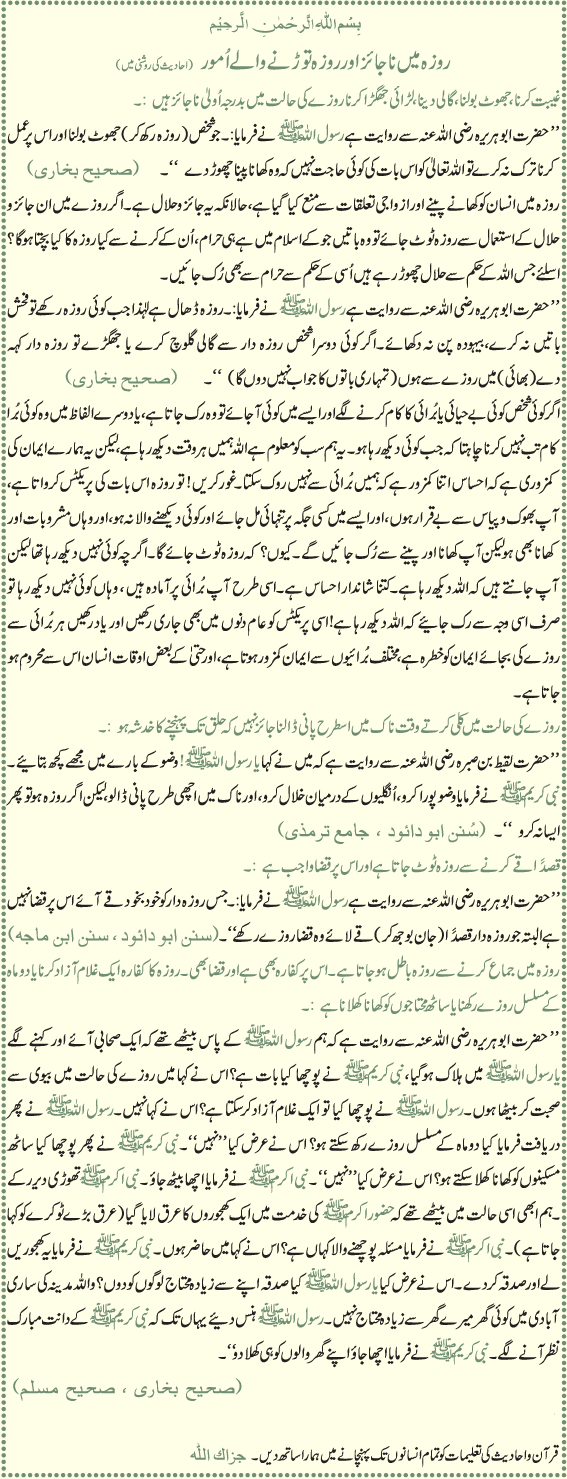 بِسْمِ اللهِ الرَّحْمٰنِ الرَّحِيْمِ
روزہ میں ناجائز اور روزہ توڑنے والے اُمور (احادیث کی روشنی میں)
غیبت کرنا، جھوٹ بولنا، گالی دینا، لڑائی جھگڑا کرنا روزے کی حالت میں بدرجہ اُولیٰ ناجائز ہیں :۔
’’حضرت ابو ہریرہ رضی اللہ عنہ سے روایت ہے رسول اللہ ﷺ نے فرمایا:۔ جو شخص (روزہ رکھ کر) جھوٹ بولنا اور اس پر عمل
کرنا ترک نہ کرے تو اللہ تعالیٰ کو اس بات کی کوئی حاجت نہیں کہ وہ کھانا پینا چھوڑ دے ‘‘۔ (صحیح بخاری)
روزہ میں انسان کو کھانے پینے اور ازواجی تعلقات سے منع کیا گیا ہے، حالانکہ یہ جائز و حلال ہے۔ اگر روزے میں ان جائز و
حلال کے استعمال سے روزہ ٹوٹ جائے تو وہ باتیں جو کے اسلام میں ہے ہی حرام، اُن کے کرنے سے کیا روزہ کا کیا بچتا ہوگا؟
اسلئے جس اللہ کے حکم سے حلال چھوڑ رہے ہیں اُسی کے حکم سے حرام سے بھی رُک جائیں۔
’’حضرت ابو ہریرہ رضی اللہ عنہ سے روایت ہے رسول اللہ ﷺ نے فرمایا:۔ روزہ ڈھال ہے لہٰذا جب کوئی روزہ رکھے تو فحش
باتیں نہ کرے، بیہودہ پن نہ دکھائے۔ اگر کوئی دوسرا شخص روزہ دار سے گالی گلوچ کرے یا جھگڑے تو روزہ دار کہہ
دے (بھائی) میں روزے سے ہوں (تمہاری باتوں کا جواب نہیں دوں گا) ‘‘۔ (صحیح بخاری)
اگر کوئی شخص کوئی بے حیائی یا برائی کا کام کرنے لگے اور ایسے میں کوئی آ جائے تو وہ رک جاتا ہے، یا دوسرے الفاظ میں وہ کوئی بُرا
کام تب نہیں کرنا چاہتا کہ جب کوئی دیکھ رہا ہو۔ یہ ہم سب کو معلوم ہے اللہ ہمیں ہر وقت دیکھ رہا ہے، لیکن یہ ہمارے ایمان کی
کمزوری ہے کہ احساس اتنا کمزور ہے کہ ہمیں بُرائی سے نہیں روک سکتا۔ غور کریں! تو روزہ اس بات کی پریکٹس کرواتا ہے،
آپ بھوک و پیاس سے بے قرار ہوں، اور ایسے میں کسی جگہ پر تنہائی مل جائے اور کوئی دیکھنے والا نہ ہو، اور وہاں مشروبات اور
کھانا بھی ہو لیکن آپ کھانا اور پینے سے رُک جائیں گے۔ کیوں؟ کہ روزہ ٹوٹ جائے گا۔ اگرچہ کوئی نہیں دیکھ رہا تھا لیکن
آپ جانتے ہیں کہ اللہ دیکھ رہا ہے۔ کتنا شاندار احساس ہے۔ اسی طرح آپ بُرائی پر آمادہ ہیں، وہاں کوئی نہیں دیکھ رہا تو
صرف اسی وجہ سے رک جائیے کہ اللہ دیکھ رہا ہے! اسی پریکٹس کو عام دنوں میں بھی جاری رکھیں اور یاد رکھیں ہر بُرائی سے
روزے کی بجائے ایمان کو خطرہ ہے، مختلف بُرائیوں سے ایمان کمزور ہوتا ہے، اور حتیٰ کے بعض اوقات انسان اس سے محروم ہو
جاتا ہے۔
روزے کی حالت میں کلی کرتے وقت ناک میں اسطرح پانی ڈالنا جائز نہیں کہ حلق تک پہنچنے کا خدشہ ہو :۔
’’حضرت لقیط بن صبرہ رضی اللہ عنہ سے روایت ہے کہ میں نے کہا یا رسول اللہ ﷺ! وضو کے بارے میں مجھے کچھ بتائیے۔
نبی کریم ﷺ نے فرمایا وضو پورا کرو، اُنگلیوں کے درمیان خلال کرو، اور ناک میں اچھی طرح پانی ڈالو لیکن اگر روزہ ہو تو پھر
ایسا نہ کرو ‘‘۔ (سُنن ابو دائود ، جامع ترمذی)
قصدًا قے کرنے سے روزہ ٹوٹ جاتا ہے اور اس پر قضا واجب ہے :۔
’’حضرت ابو ہریرہ رضی اللہ عنہ سے روایت ہے رسول اللہ ﷺ نے فرمایا:۔ جس روزہ دار کو خود بخود قے آئے اس پر قضا نہیں
ہے البتہ جو روزہ دار قصدًا (جان بوجھ کر) قے لائے وہ قضا روزے رکھے‘‘۔ (سنن ابو دائود ، سنن ابن ماجه)
روزہ میں جماع کرنے سے روزہ باطل ہو جاتا ہے۔ اس پر کفارہ بھی ہے اور قضا بھی۔ روزہ کا کفارہ ایک غلام آزاد کرنا یا دو ماہ
کے مسلسل روزے رکھنا یا ساٹھ محتاجوں کو کھانا کھلانا ہے :۔
’’حضرت ابو ہریرہ رضی اللہ عنہ سے روایت ہے کہ ہم رسول اللہ ﷺ کے پاس بیٹھے تھے کہ ایک صحابی آئے اور کہنے لگے
یا رسول اللہ ﷺ میں ہلاک ہو گیا، نبی کریم ﷺ نے پوچھا کیا بات ہے؟ اس نے کہا میں روزے کی حالت میں بیوی سے
صحبت کر بیٹھا ہوں۔ رسول اللہ ﷺ نے پوچھا کیا تو ایک غلام آزاد کر سکتا ہے؟ اس نے کہا نہیں۔ رسول اللہ ﷺ نے پھر
دریافت فرمایا کیا دو ماہ کے مسلسل روزے رکھ سکتے ہو؟ اس نے عرض کیا ’’نہیں‘‘۔ نبی کریم ﷺ نے پھر پوچھا کیا ساٹھ
مسکینوں کو کھانا کھلا سکتے ہو؟ اس نے عرض کیا ’’نہیں‘‘۔ نبی اکرم ﷺ نے فرمایا اچھا بیٹھ جاؤ۔ نبی اکرم ﷺ تھوڑی دیر رکے
۔ ہم ابھی اسی حالت میں بیٹھے تھے کہ حضور اکرم ﷺ کی خدمت میں ایک کھجوروں کا عرق لایا گیا (عرق بڑے ٹوکرے کو کہا
جاتا ہے)۔ نبی اکرم ﷺ نے فرمایا مسئلہ پوچھنے والا کہاں ہے؟ اس نے کہا میں حاضر ہوں۔ نبی کریم ﷺ نے فرمایا یہ کھجوریں
لے اور صدقہ کر دے۔ اس نے عرض کیا یا رسول اللہ ﷺ کیا صدقہ اپنے سے زیادہ محتاج لوگوں کو دوں؟ واللہ مدینہ کی ساری
آبادی میں کوئی گھر میرے گھر سے زیادہ محتاج نہیں۔ رسول اللہ ﷺ ہنس دیئے یہاں تک کہ نبی کریم ﷺ کے دانت مبارک
نظر آنے لگے۔ نبی کریم ﷺ نے فرمایا اچھا جاؤ اپنے گھر والوں کو ہی کھلا دو‘‘۔
(صحیح بخاری ، صحیح مسلم)
قرآن و احادیث کی تعلیمات کو تمام انسانوں تک پہنچانے میں ہمارا ساتھ دیں۔ جزاك الله